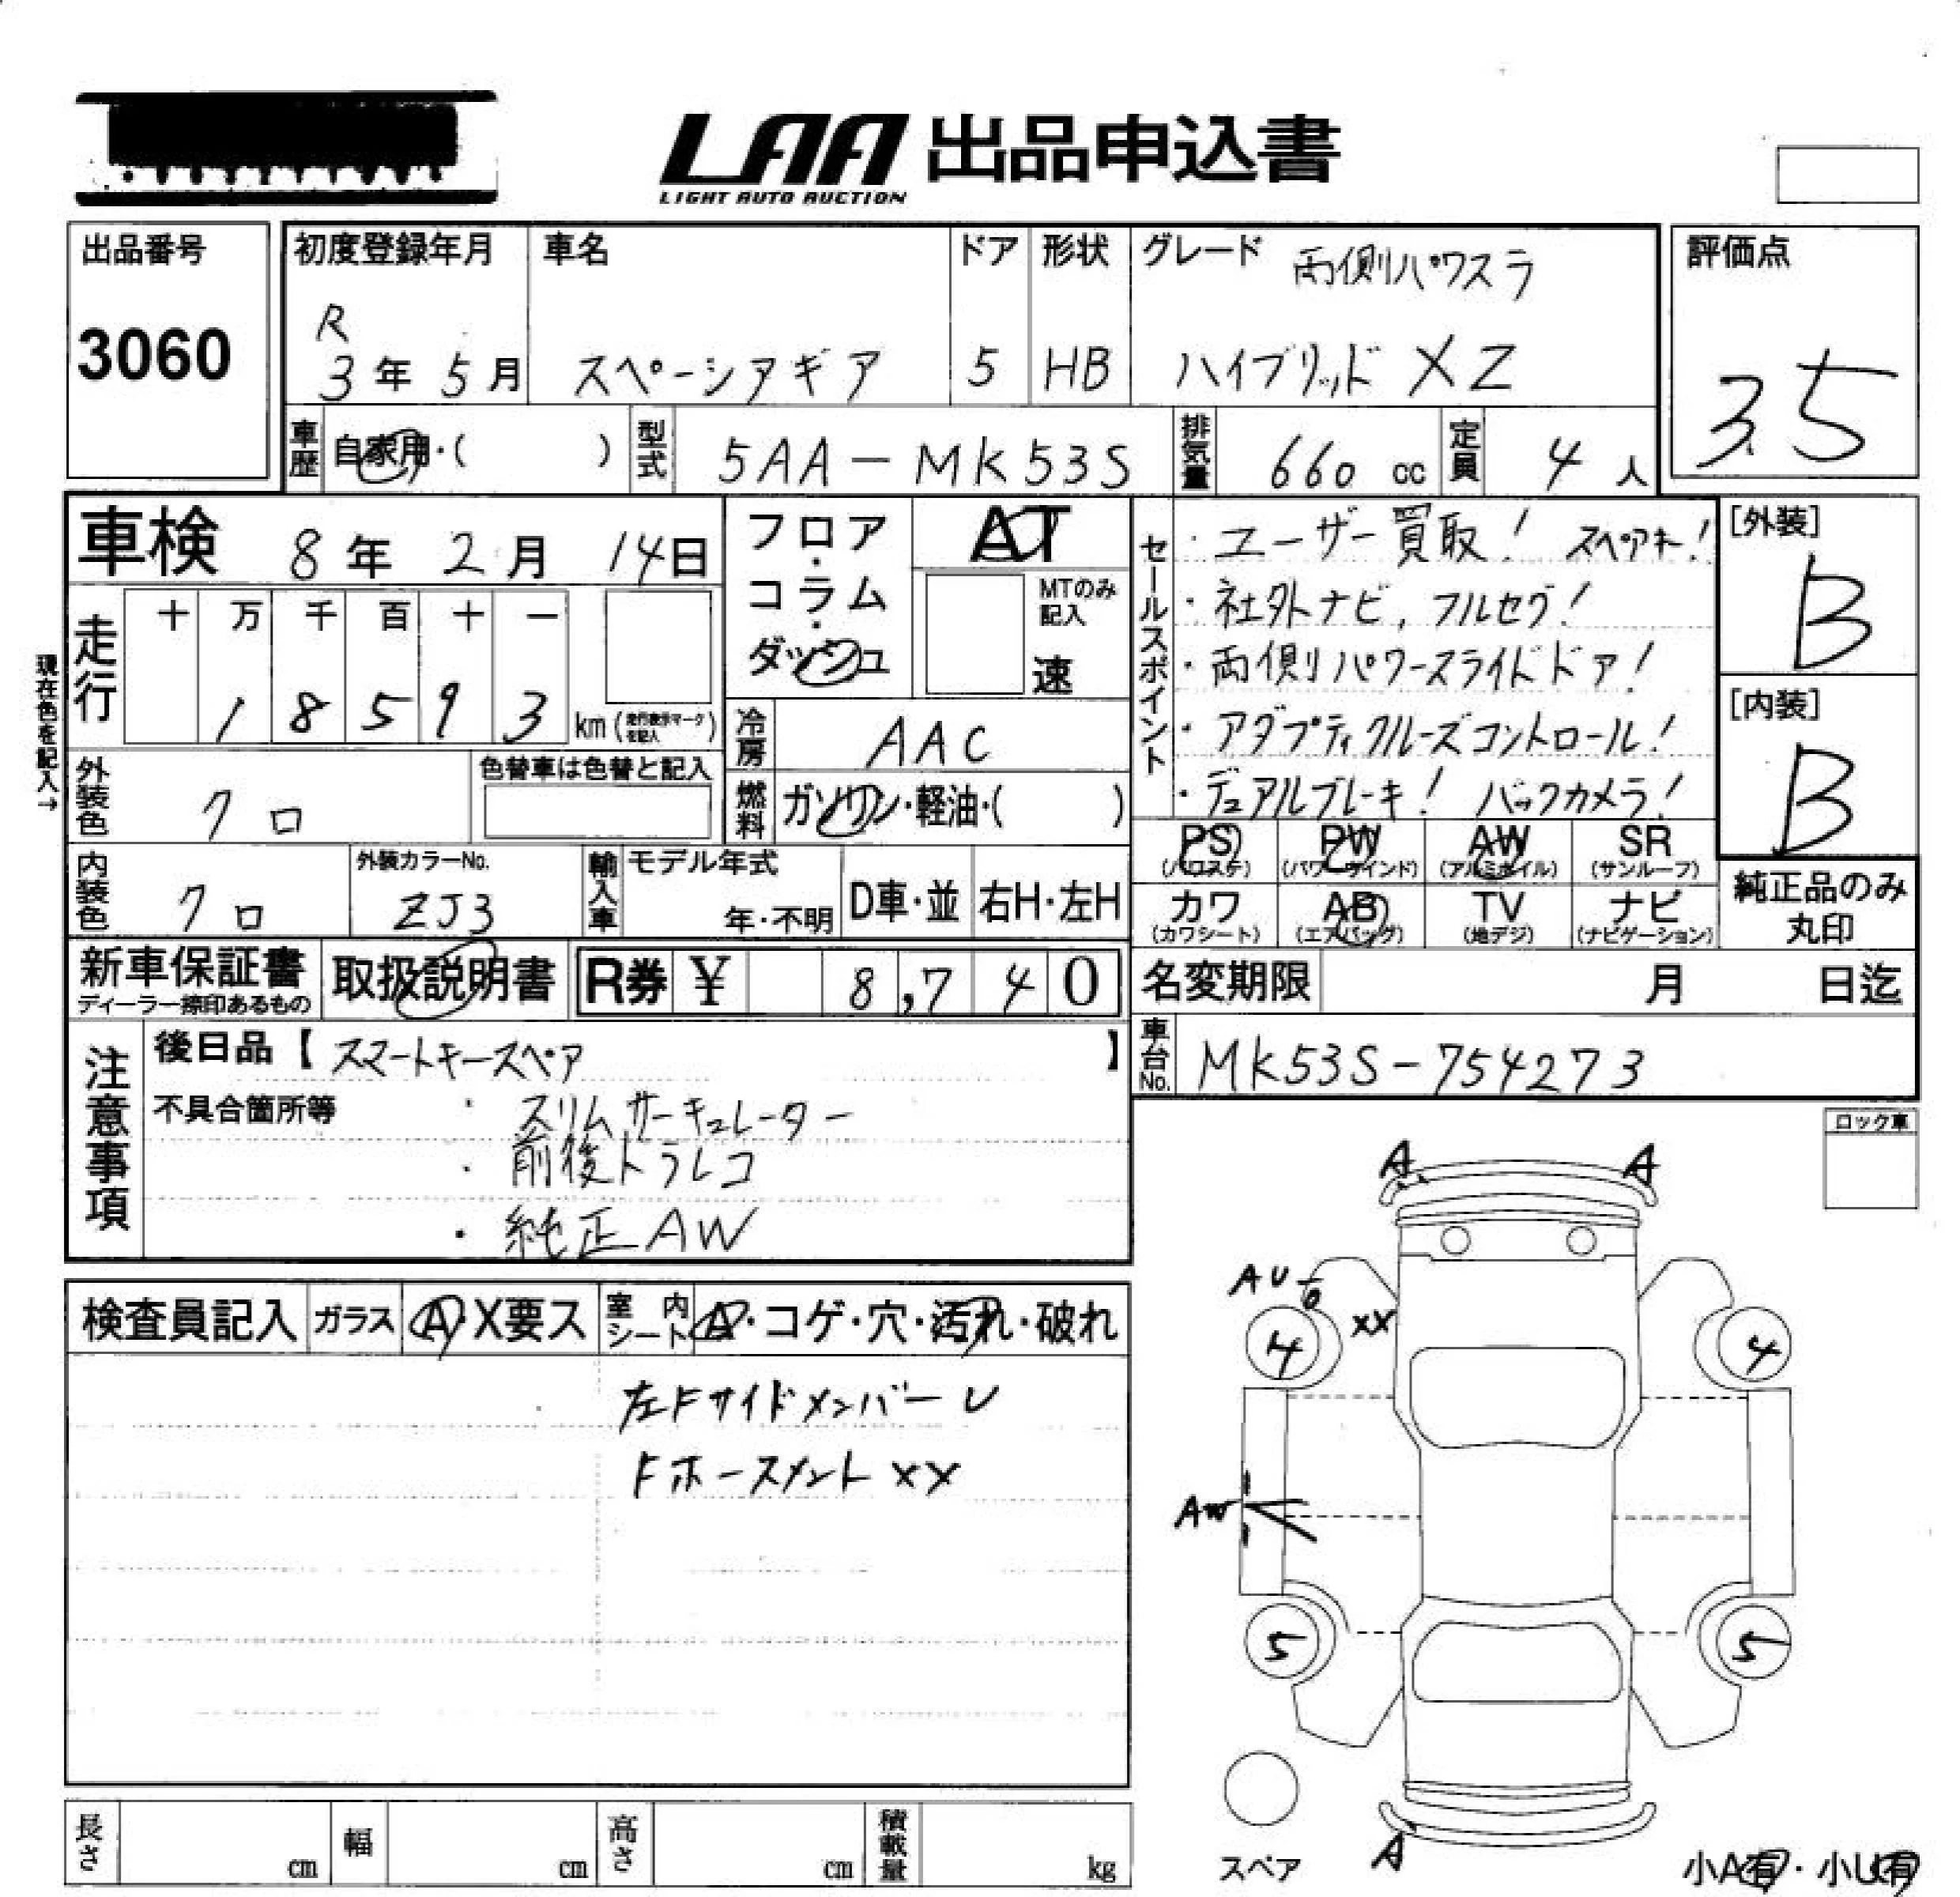 LAA 出品申込書
LIGHT AUTO AUCTION
出品番号
3060
初度登録年月
R
3年 5月
車名
スペーシアギア
ドア
5
形状
HB
グレード 両側パワスラ
ハイブリッド XZ
評価点
3.5
車歴 自家用・( )
型式 5AA-MK53S
排気量 660 cc
定員 4人
車検 8年 2月 14日
走行 十 万 千 百 十 一
1 8 5 9 3 km (走行表示マークを記入)
現在色を記入→
フロア・コラム・ダッシュ
AT
MTのみ記入
速
冷房 AAC
燃料 ガソリン・軽油・( )
外装色 クロ
色替車は色替と記入
内装色 クロ
外装カラーNo.
ZJ3
輸入車 モデル年式
年・不明
D車・並 右H・左H
セールスポイント
・ユーザー買取! スペアキー!
・社外ナビ, フルセグ!
・両側パワースライドドア!
・アダプティクルーズコントロール!
・デュアルブレーキ! バックカメラ!
[外装]
B
[内装]
B
PS (パワステ) PW (パワーウインド) AW (アルミホイル) SR (サンルーフ)
カワ (カワシート) AB (エアバッグ) TV (地デジ) ナビ (ナビゲーション)
純正品のみ
丸印
新車保証書
ディーラー捺印あるもの
取扱説明書
R券 ¥ 8,740
名変期限 月 日迄
車台No. MK53S-754273
注意事項
後日品【スマートキースペア 】
不具合箇所等 ・スリムサーキュレーター
・前後ドラレコ
・純正AW
ロック車
検査員記入 ガラス A X要ス 室内シート A・コゲ・穴・汚れ・破れ
左FサイドメンバーU
Fホースメント XX
A A
AU
XX
4 4
AW
5 5
A
スペア
小A有・小U有
長さ cm 幅 cm 高さ cm 積載量 kg